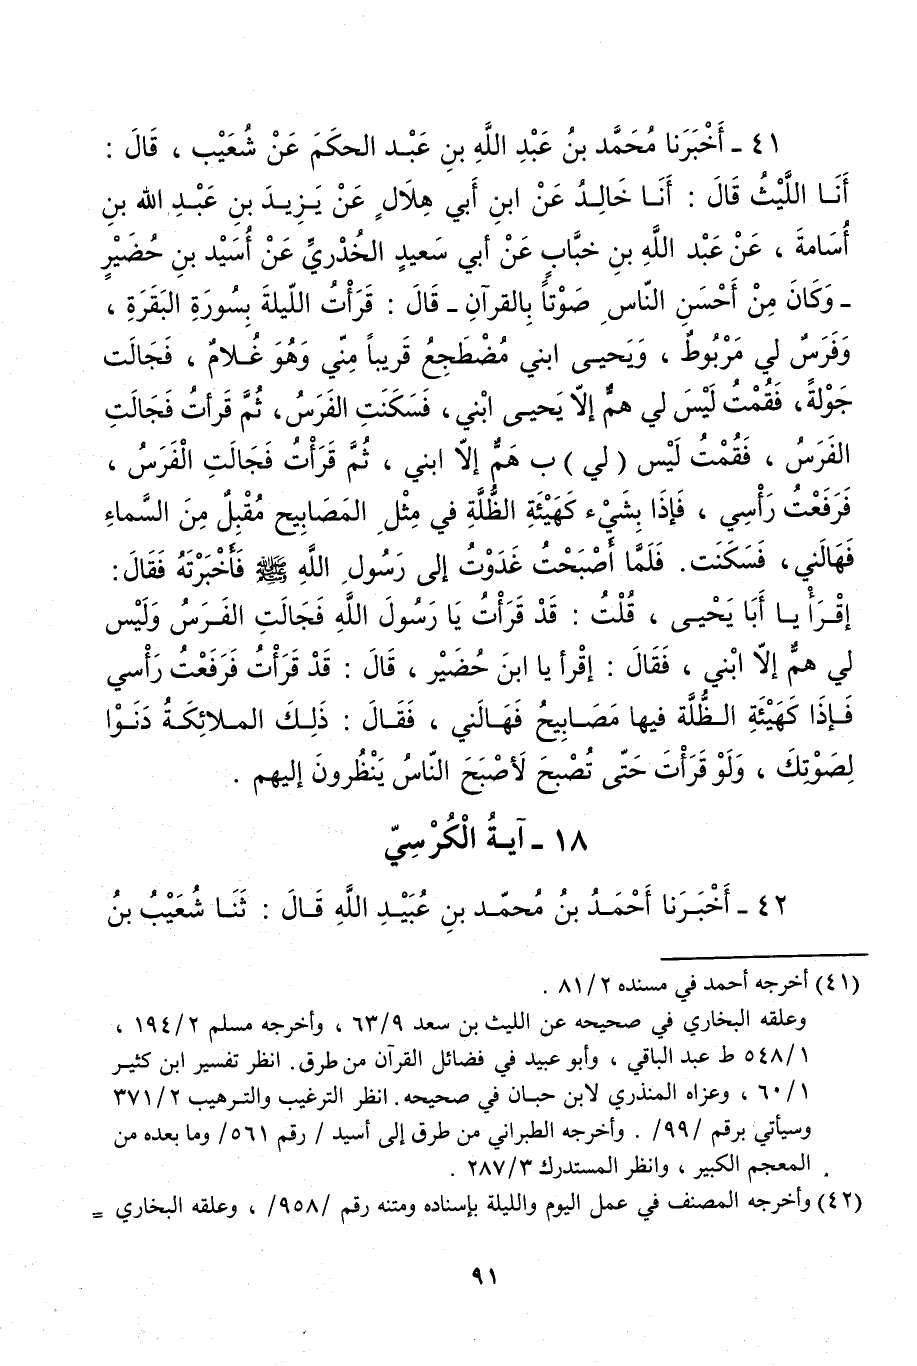 ٤١ ـ أَخْبَرَنا مُحَمَّد بنُ عَبْدِ اللَّهِ بنِ عَبْد الحكَمَ عَنْ شُعَيْب ، قَالَ :
أَنَا اللَّيْثُ قَالَ : أَنَا خَالِدُ عَنْ ابنِ أَبي هِلَالٍ عَنْ يَزِيدَ بنِ عَبْدِ الله بنِ
أُسَامةَ ، عَنْ عَبْد اللَّهِ بنِ خبَّابٍ عَنْ أبي سَعيدٍ الخُدْريِّ عَنْ أُسَيْد بنِ حُضَيْرٍ
ـ وَكَانَ مِنْ أَحْسَنِ النّاسِ صَوْتاً بِالقرآنِ ـ قَالَ : قَرَأْتُ اللّيلةَ بِسُورَةِ البَقَرَةِ ،
وَفَرَسٌ لي مَرْبُوطٌ ، وَيَحيى ابني مُضْطَجِعُ قَريباً مِنّي وَهُوَ غُلامٌ ، فَجَالَت
جَوْلةً ، فَقُمْتُ لَيْسَ لي همٌّ إلاّ يَحيى ابْني ، فَسَكَنَتِ الفَرَسُ، ثُمَّ قَرأتُ فَجَالَتِ
الفَرَسُ ، فَقُمْتُ لَيْس ( لي ) ب هَمٌّ إلاّ ابني ، ثُمَّ قَرَأْتُ فَجَالَتِ الْفَرَسُ ،
فَرَفَعْتُ رَأْسِي ، فَإذَا بِشَيْء كَهَيْئَةِ الظُّلَّةِ في مِثْلِ المَصَابِيحِ مُقْبِلٌ مِنَ السَّماءِ
فَهَالَني، فَسَكَنَت. فَلَمَّا أَصْبَحْتُ غَدَوْتُ إلى رَسُولِ اللَّهِ ﷺ فَأَخْبَرْتَهُ فَقالَ:
إقْرَأْ يا أَبَا يَحْيى ، قُلْتُ : قَدْ قَرَأْتُ يَا رَسُولَ اللَّهِ فَجَالَتِ الفَرَسُ وَلَيْس
لي همٌّ إلاّ ابْني ، فَقَالَ : إقْرأ يا ابنَ حُضَيْر ، قَالَ : قَدْ قَرَأْتُ فَرَفَعْتُ رَأْسي
فَإذَا كَهَيْئَةِ الظُّلَّة فيها مَصَابِيحُ فَهَالَني ، فَقَالَ : ذَلِكَ الملائِكَةُ دَنَوْا
لِصَوْتِكَ ، وَلَوْ قَرَأْتَ حَتّى تُصْبِحَ لَأصْبَحَ النّاسُ يَنْظُرونَ إليهم .
١٨ ـ آيةُ الْكُرْسِيّ
٤٢ ـ أَخْبَرَنا أَحْمَدُ بنُ مُحمّد بنِ عُبَيْدِ اللَّهِ قَالَ : ثَنَا شُعَيْبُ بنُ
(٤١) أخرجه أحمد في مسنده ٨١/٢ .
وعلقه البخاري في صحيحه عن الليث بن سعد ٦٣/٩ ، وأخرجه مسلم ١٩٤/٢ ،
٥٤٨/١ ط عبد الباقي ، وأبو عبيد في فضائل القرآن من طرق. انظر تفسير ابن كثير
٦٠/١ ، وعزاه المنذري لابن حبان في صحيحه. انظر الترغيب والترهيب ٣٧١/٢
وسيأتي برقم /٩٩/ . وأخرجه الطبراني من طرق إلى أسيد / رقم ٥٦١/ وما بعده من
المعجم الكبير ، وانظر المستدرك ٢٨٧/٣ .
(٤٢) وأخرجه المصنف في عمل اليوم والليلة بإسناده ومتنه رقم /٩٥٨/ ، وعلقه البخاري =
٩١